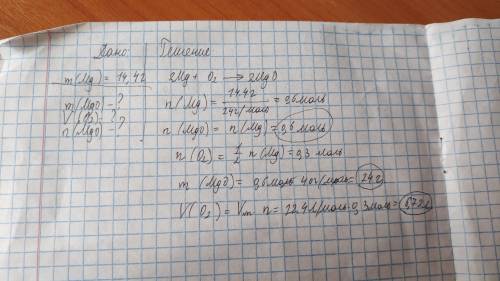 Дано:
m(Mg) = 14,4г
m(MgO) - ?
V(O2) - ?
n(MgO) - ?
Решение
2Mg + O2 → 2MgO
n(Mg) = 14,4г / 24г/моль = 0,6 моль
n(MgO) = n(Mg) = 0,6 моль
n(O2) = 1/2 n(Mg) = 0,3 моль
m(MgO) = 0,6 моль · 40г/моль = 24г
V(O2) = Vm · n = 22,4 л/моль · 0,3 моль = 6,72 л